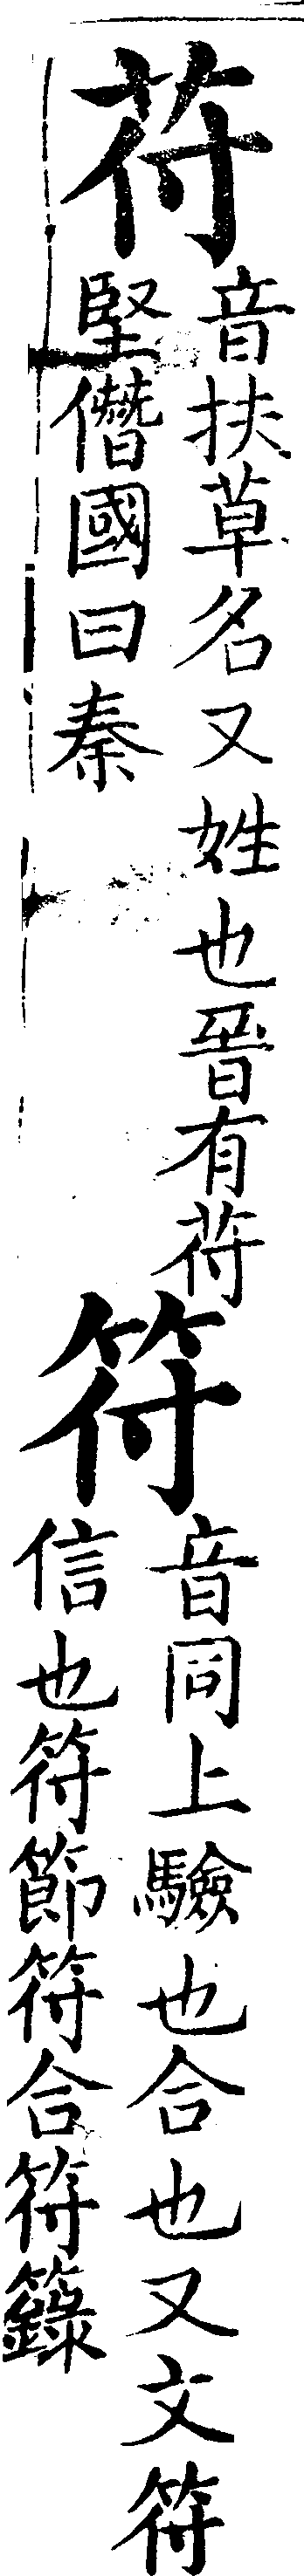 苻
音扶草名又姓也晋有苻
堅僭國曰秦
符
音同上驗也合也又文符
信也符節符合符籙